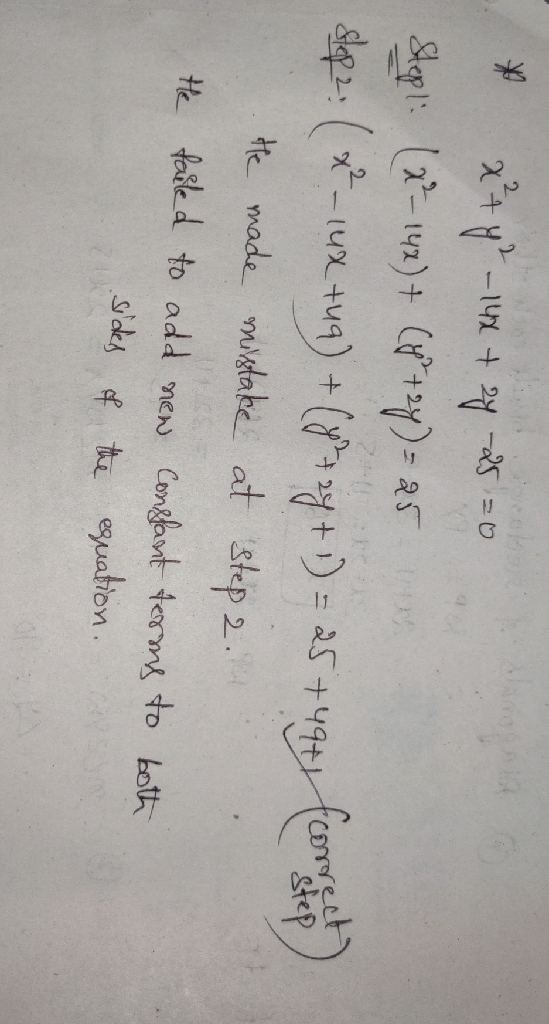 * x² + y² - 14x + 2y - 25 = 0
Step 1: (x² - 14x) + (y² + 2y) = 25
Step 2: (x² - 14x + 49) + (y² + 2y + 1) = 25 + 49 + 1 (correct step)
He made mistake at step 2.
He failed to add new constant terms to both
sides of the equation.